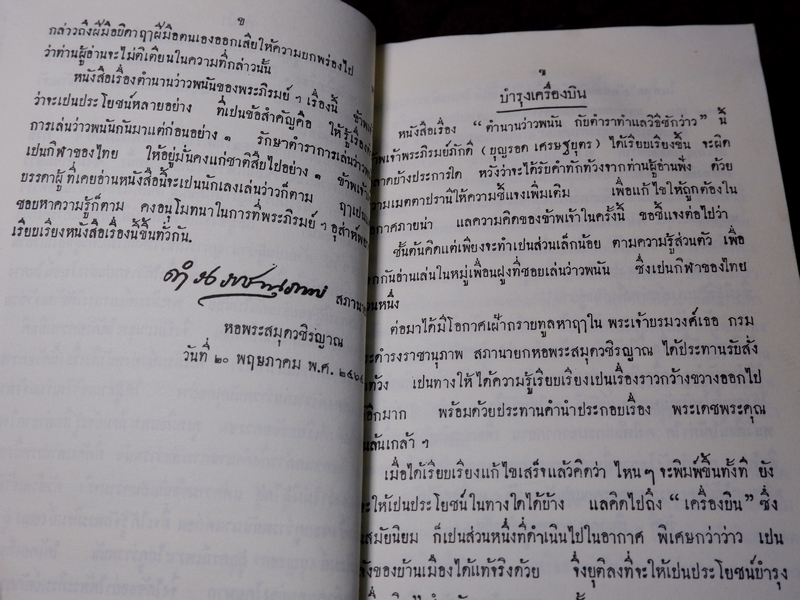 ข
กล่าวถึงฝีมือยิดาฤาฝีมือตนเองออกเสียให้ความบกพร่องไป
ว่าท่านผู้อ่านจะไม่ติเตียนในความที่กล่าวนั้น
หนังสือเรื่องตำนานว่าวพนันของพระภิรมย์ ฯ เรื่องนี้
ว่าจะเปนประโยชน์หลายอย่าง ที่เปนข้อสำคัญคือ ให้รู้เรื่อง
การเล่นว่าวพนันกันมาแต่ก่อนอย่าง ๑ รักษาตำราการเล่นว่าว
เปนกิฬาของไทย ให้อยู่มั่นคงแก่ชาติสืบไปอย่าง ๑
บรรดาผู้ที่เคยอ่านหนังสือนี้จะเปนนักเลงเล่นว่าวก็ตาม
ชอบหาความรู้ก็ตาม คงอนุโมทนาในการที่พระภิรมย์ ฯ อุส่าห์
เรียบเรียงหนังสือเรื่องนี้ขึ้นทั่วกัน.
สภานายก
หอพระสมุดวชิรญาณ
วันที่ ๒๐ พฤษภาคม พ.ศ.
บำรุงเครื่องบิน
หนังสือเรื่อง “ ตำนานว่าวพนัน กับตำราทำแลวิธีชักว่าว” นี้
ข้าพเจ้าพระภิรมย์ภักดี ( บุญรอด เศรษฐบุตร ) ได้เรียบเรียงขึ้น จะผิด
พลาดบ้างประการใด หวังว่าจะได้รับคำทักท้วงจากท่านผู้อ่านฟัง ด้วย
ความเมตตาปรานีให้ความชี้แจงเพิ่มเติม เพื่อแก้ไขให้ถูกต้องใน
โอกาศภายน่า แลความคิดของข้าพเจ้าในครั้งนี้ ขอชี้แจงต่อไปว่า
ชั้นต้นคิดแต่เพียงจะทำเปนส่วนเล็กน้อย ตามความรู้ส่วนตัว เพื่อ
กันอ่านเล่นในหมู่เพื่อนฝูงที่ชอบเล่นว่าวพนัน ซึ่งเปนกิฬาของไทย
ส่วนหนึ่ง
ต่อมาได้มีโอกาศเฝ้ากราบทูลหาฤๅใน พระเจ้าบรมวงศ์เธอ กรม
พระดำรงราชานุภาพ สภานายกหอพระสมุดวชิรญาณ ได้ประทานรับสั่ง
ทักท้วง เปนทางให้ได้ความรู้เรียบเรียงเปนเรื่องราวกว้างขวางออกไป
อีกมาก พร้อมด้วยประทานคำนำประกอบเรื่อง พระเดชพระคุณ
ล้นเกล้า ฯ
เมื่อได้เรียบเรียงแก้ไขเสร็จแล้วคิดว่า ไหน ๆ จะพิมพ์ขึ้นทั้งที ยัง
จะให้เปนประโยชน์ในทางใดได้บ้าง แลคิดไปถึง “ เครื่องบิน” ซึ่ง
สมัยนิยม ก็เปนส่วนหนึ่งที่ดำเนินไปในอากาศ พิเศษกว่าว่าว เปน
ของบ้านเมืองได้แท้จริงด้วย จึงยุติลงที่จะให้เปนประโยชน์บำรุง